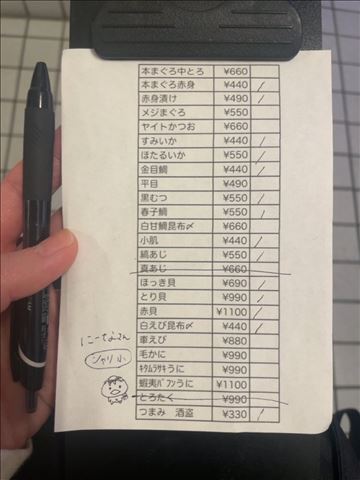 本まぐろ中とろ ¥660
本まぐろ赤身 ¥440 /
赤身漬け ¥490 /
メジまぐろ ¥550
ヤイトかつお ¥660
すみいか ¥440 /
ほたるいか ¥550 /
金目鯛 ¥440 /
平目 ¥490
黒むつ ¥550 /
春子鯛 ¥550 /
白甘鯛昆布〆 ¥660
小肌 ¥440 /
縞あじ ¥550 /
真あじ ¥660
ほっき貝 ¥690 /
とり貝 ¥990 /
赤貝 ¥1100 /
白えび昆布〆 ¥440 /
車えび ¥880
毛かに ¥990
ｷﾀﾑﾗｻｷうに ¥990
蝦夷ﾊﾞﾌﾝうに ¥1100
とろたく ¥990
つまみ 酒盗 ¥330 /
シャリ小